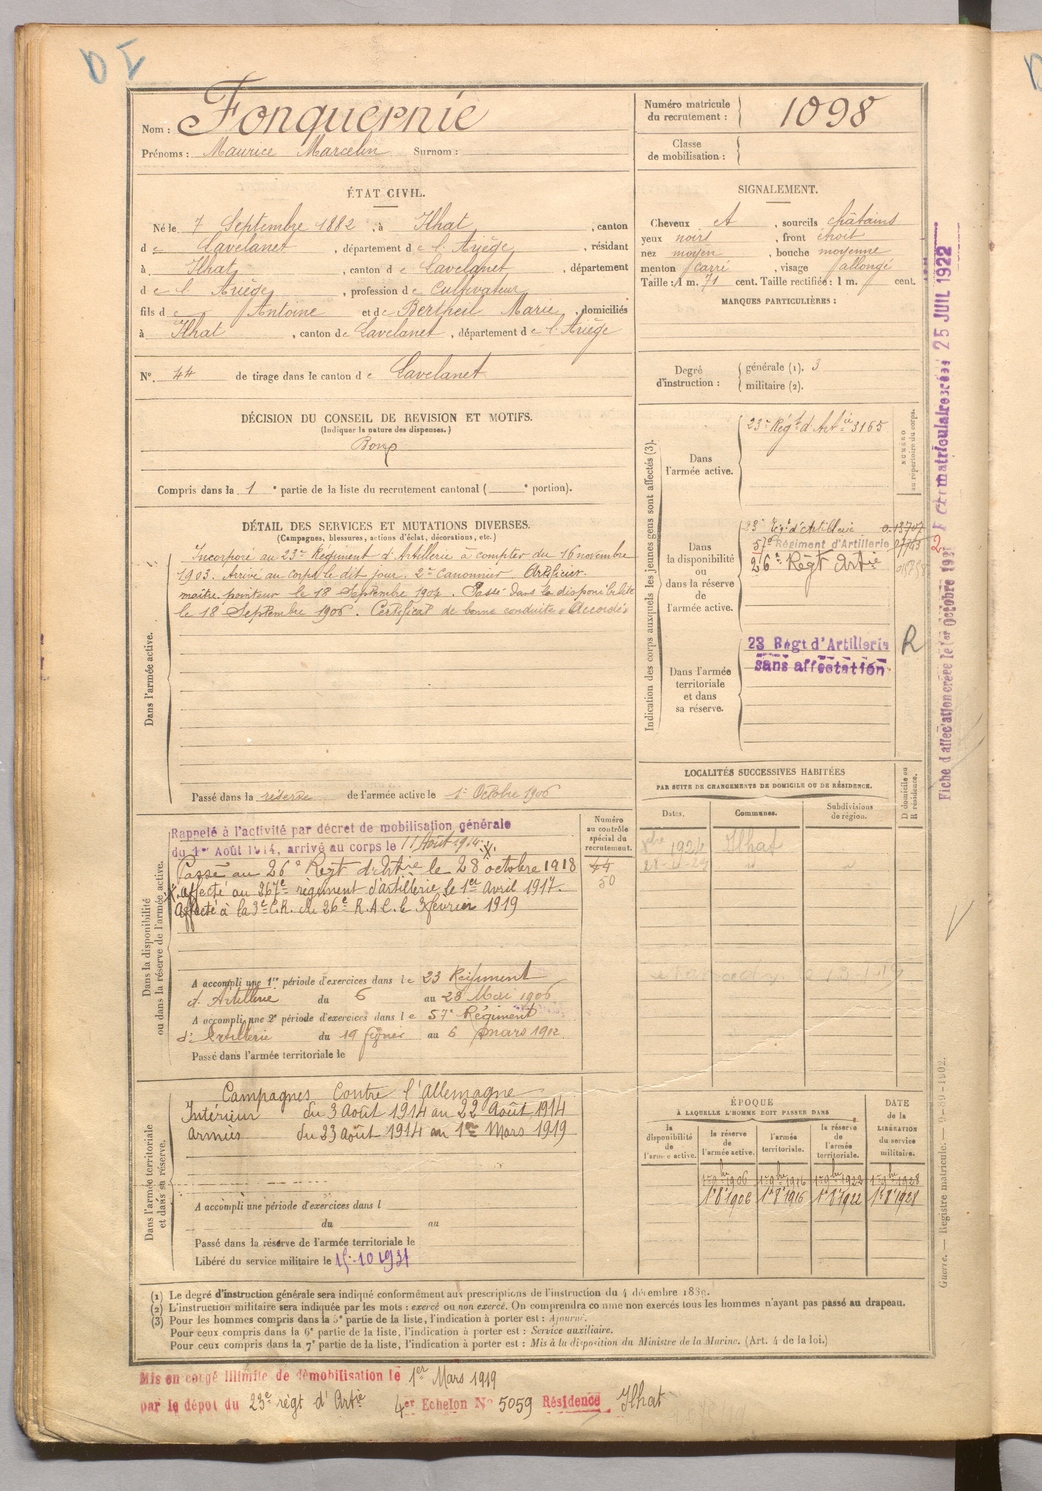 D I
Nom : Fonquernie
Prénoms : Maurice Marcelin Surnom :
Numéro matricule du recrutement : 1098
Classe de mobilisation :
ÉTAT CIVIL.
Né le 7 Septembre 1882, à Ilhat, canton
de Lavelanet, département de l'Ariège, résidant
à Ilhat, canton de Lavelanet, département
de l'Ariège, profession de Cultivateur
fils de Antoine et de Bertheil Marie, domiciliés
à Ilhat, canton de Lavelanet, département de l'Ariège
N°. 44 de tirage dans le canton de Lavelanet
SIGNALEMENT.
Cheveux et, sourcils châtains
yeux noirs, front étroit
nez moyen, bouche moyenne
menton carré, visage allongé
Taille : 1 m. 71 cent. Taille rectifiée : 1 m. cent.
MARQUES PARTICULIÈRES :
Degré d'instruction :
générale (1). 3
militaire (2).
DÉCISION DU CONSEIL DE REVISION ET MOTIFS.
(Indiquer la nature des dispenses.)
Bon
Compris dans la 1e partie de la liste du recrutement cantonal ( e portion).
DÉTAIL DES SERVICES ET MUTATIONS DIVERSES.
(Campagnes, blessures, actions d'éclat, décorations, etc.)
Dans l'armée active.
Incorporé au 23e Régiment d'Artillerie à compter du 16 novembre
1903. Arrivé au corps le dit jour. 2e canonnier Artificier.
maître pointeur le 18 Septembre 1904. Passé dans la disponibilité
le 18 Septembre 1906. Certificat de bonne conduite "Accordé"
Passé dans la réserve de l'armée active le 1er Octobre 1906
Indication des corps auxquels les jeunes gens sont affectés (3).
Dans l'armée active.
23e Régt d'Artie 3165
NUMÉRO au répertoire du corps.
Dans la disponibilité ou dans la réserve de l'armée active.
23e Régt d'Artillerie
57e Régiment d'Artillerie
26e Régt Artie
Dans l'armée territoriale et dans sa réserve.
23 Régt d'Artillerie
sans affectation
R
LOCALITÉS SUCCESSIVES HABITÉES
PAR SUITE DE CHANGEMENTS DE DOMICILE OU DE RÉSIDENCE.
Dates. Communes. Subdivisions de région. D domicile ou R résidence.
Ilhat
Dans la disponibilité ou dans la réserve de l'armée active.
Numéro au contrôle spécial du recrutement.
44
50
Rappelé à l'activité par décret de mobilisation générale
du 1er Août 1914, arrivé au corps le 11 Août 1914
Passé au 26e Régt d'Artie le 28 octobre 1918
affecté au 267e régiment d'artillerie le 1er Avril 1917.
Affecté à la 9e C.R. du 26e R.A.C. le 3 février 1919
A accompli une 1re période d'exercices dans le 23 Régiment
d'Artillerie du 6 au 28 Mai 1906
A accompli une 2e période d'exercices dans le 57e Régiment
d'Artillerie du 19 février au 6 mars 1912
Passé dans l'armée territoriale le
Dans l'armée territoriale et dans sa réserve.
Campagnes Contre l'Allemagne
Intérieur du 3 Août 1914 au 22 Août 1914
armées du 23 août 1914 au 1er Mars 1919
A accompli une période d'exercices dans l
du au
Passé dans la réserve de l'armée territoriale le
Libéré du service militaire le 15-10-1931
ÉPOQUE
À LAQUELLE L'HOMME DOIT PASSER DANS
la disponibilité de l'armée active. la réserve de l'armée active. l'armée territoriale. la réserve de l'armée territoriale. DATE de la LIBÉRATION du service militaire.
(1) Le degré d'instruction générale sera indiqué conformément aux prescriptions de l'instruction du 4 décembre 1889.
(2) L'instruction militaire sera indiquée par les mots : exercé ou non exercé. On comprendra comme non exercés tous les hommes n'ayant pas passé au drapeau.
(3) Pour les hommes compris dans la 5e partie de la liste, l'indication à porter est : Ajourné.
Pour ceux compris dans la 6e partie de la liste, l'indication à porter est : Service auxiliaire.
Pour ceux compris dans la 7e partie de la liste, l'indication à porter est : Mis à la disposition du Ministre de la Marine. (Art. 4 de la loi.)
Mis en congé illimité de démobilisation le 1er Mars 1919
par le dépot du 23e régt d'Artie 4er Echelon N° 5059 Résidence Ilhat
Guerre. — Registre matricule. — 9-89-1902.